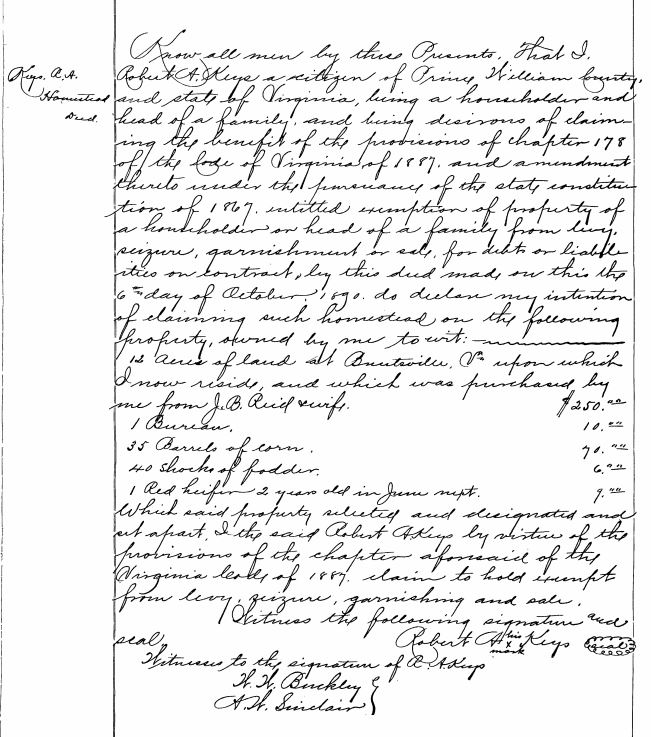 Keys, R. A.
Homestead
Deed.
Know all men by these Presents, That I.
Robert A. Keys a citizen of Prince William County,
and state of Virginia, being a householder and
head of a family, and being desirous of claim-
ing the benefit of the provisions of chapter 178
of the Code of Virginia of 1887. and amendment
thereto under the pursuance of the state constitu-
tion of 1867. entitled exemption of property of
a householder or head of a family from levy,
seizure, garnishment or sale, for debts or liabil-
ities on contract, by this deed made on this the
6th day of October. 1890. do declare my intention
of claiming such homestead on the following
property, owned by me to wit:
12 Acres of land at Brentsville, Va upon which
I now reside, and which was purchased by
me from J. B. Reid & wife. $250.00
1 Bureau. 10.00
35 Barrels of corn. 70.00
40 Shocks of fodder. 6.00
1 Red heifer 2 years old in June next. 9.00
Which said property selected and designated and
set apart, I the said Robert A Keys by virtue of the
provisions of the chapter aforesaid of the
Virginia Code of 1887. claim to hold exempt
from levy, seizure, garnishing and sale.
Witness the following signature and
seal,
Robert A his x mark Keys seal
Witnesses to the signature of R. A. Keys
W. W. Buckley
A. W. Sinclair